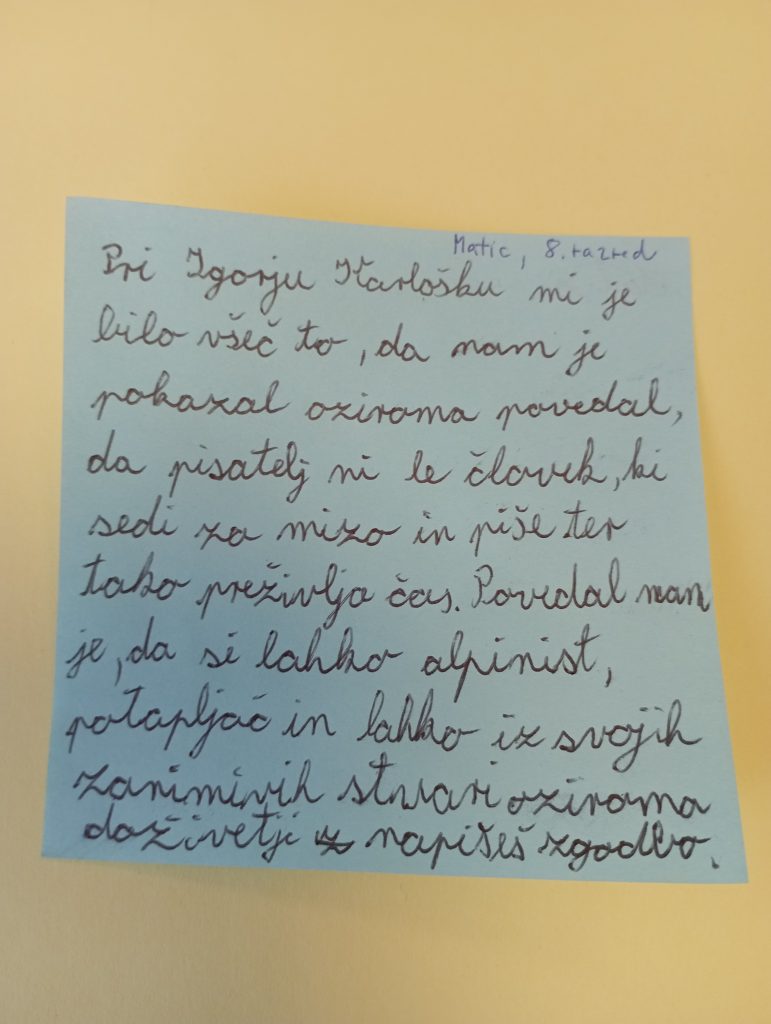 Matic, 8. razred
Pri Igorju Karlošku mi je
bilo všeč to, da nam je
pokazal oziroma povedal,
da pisatelj ni le človek, ki
sedi za mizo in piše ter
tako preživlja čas. Povedal nam
je, da si lahko alpinist,
potapljač in lahko iz svojih
zanimivih stvari oziroma
doživetji napišeš zgodbo.